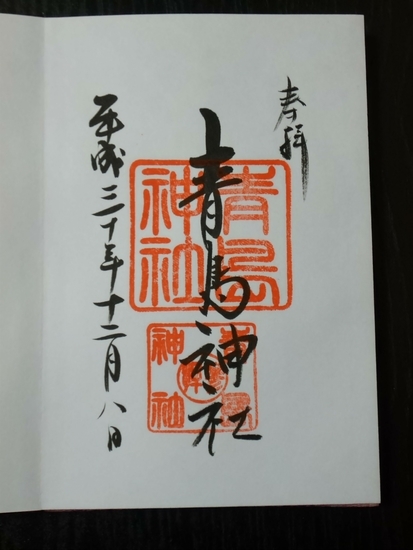 奉拝
青島神社
平成三十年十二月八日
青島
神社
神社